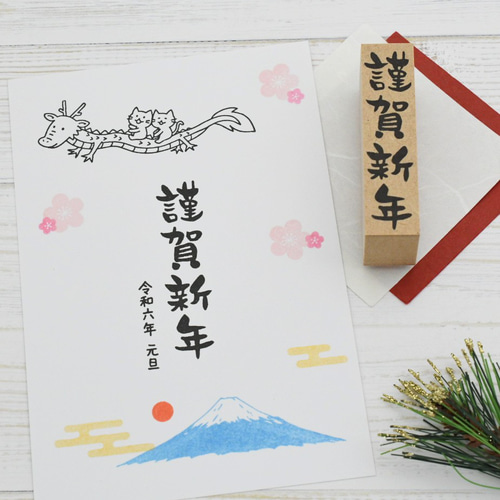 謹賀新年
令和六年 元旦
謹賀新年